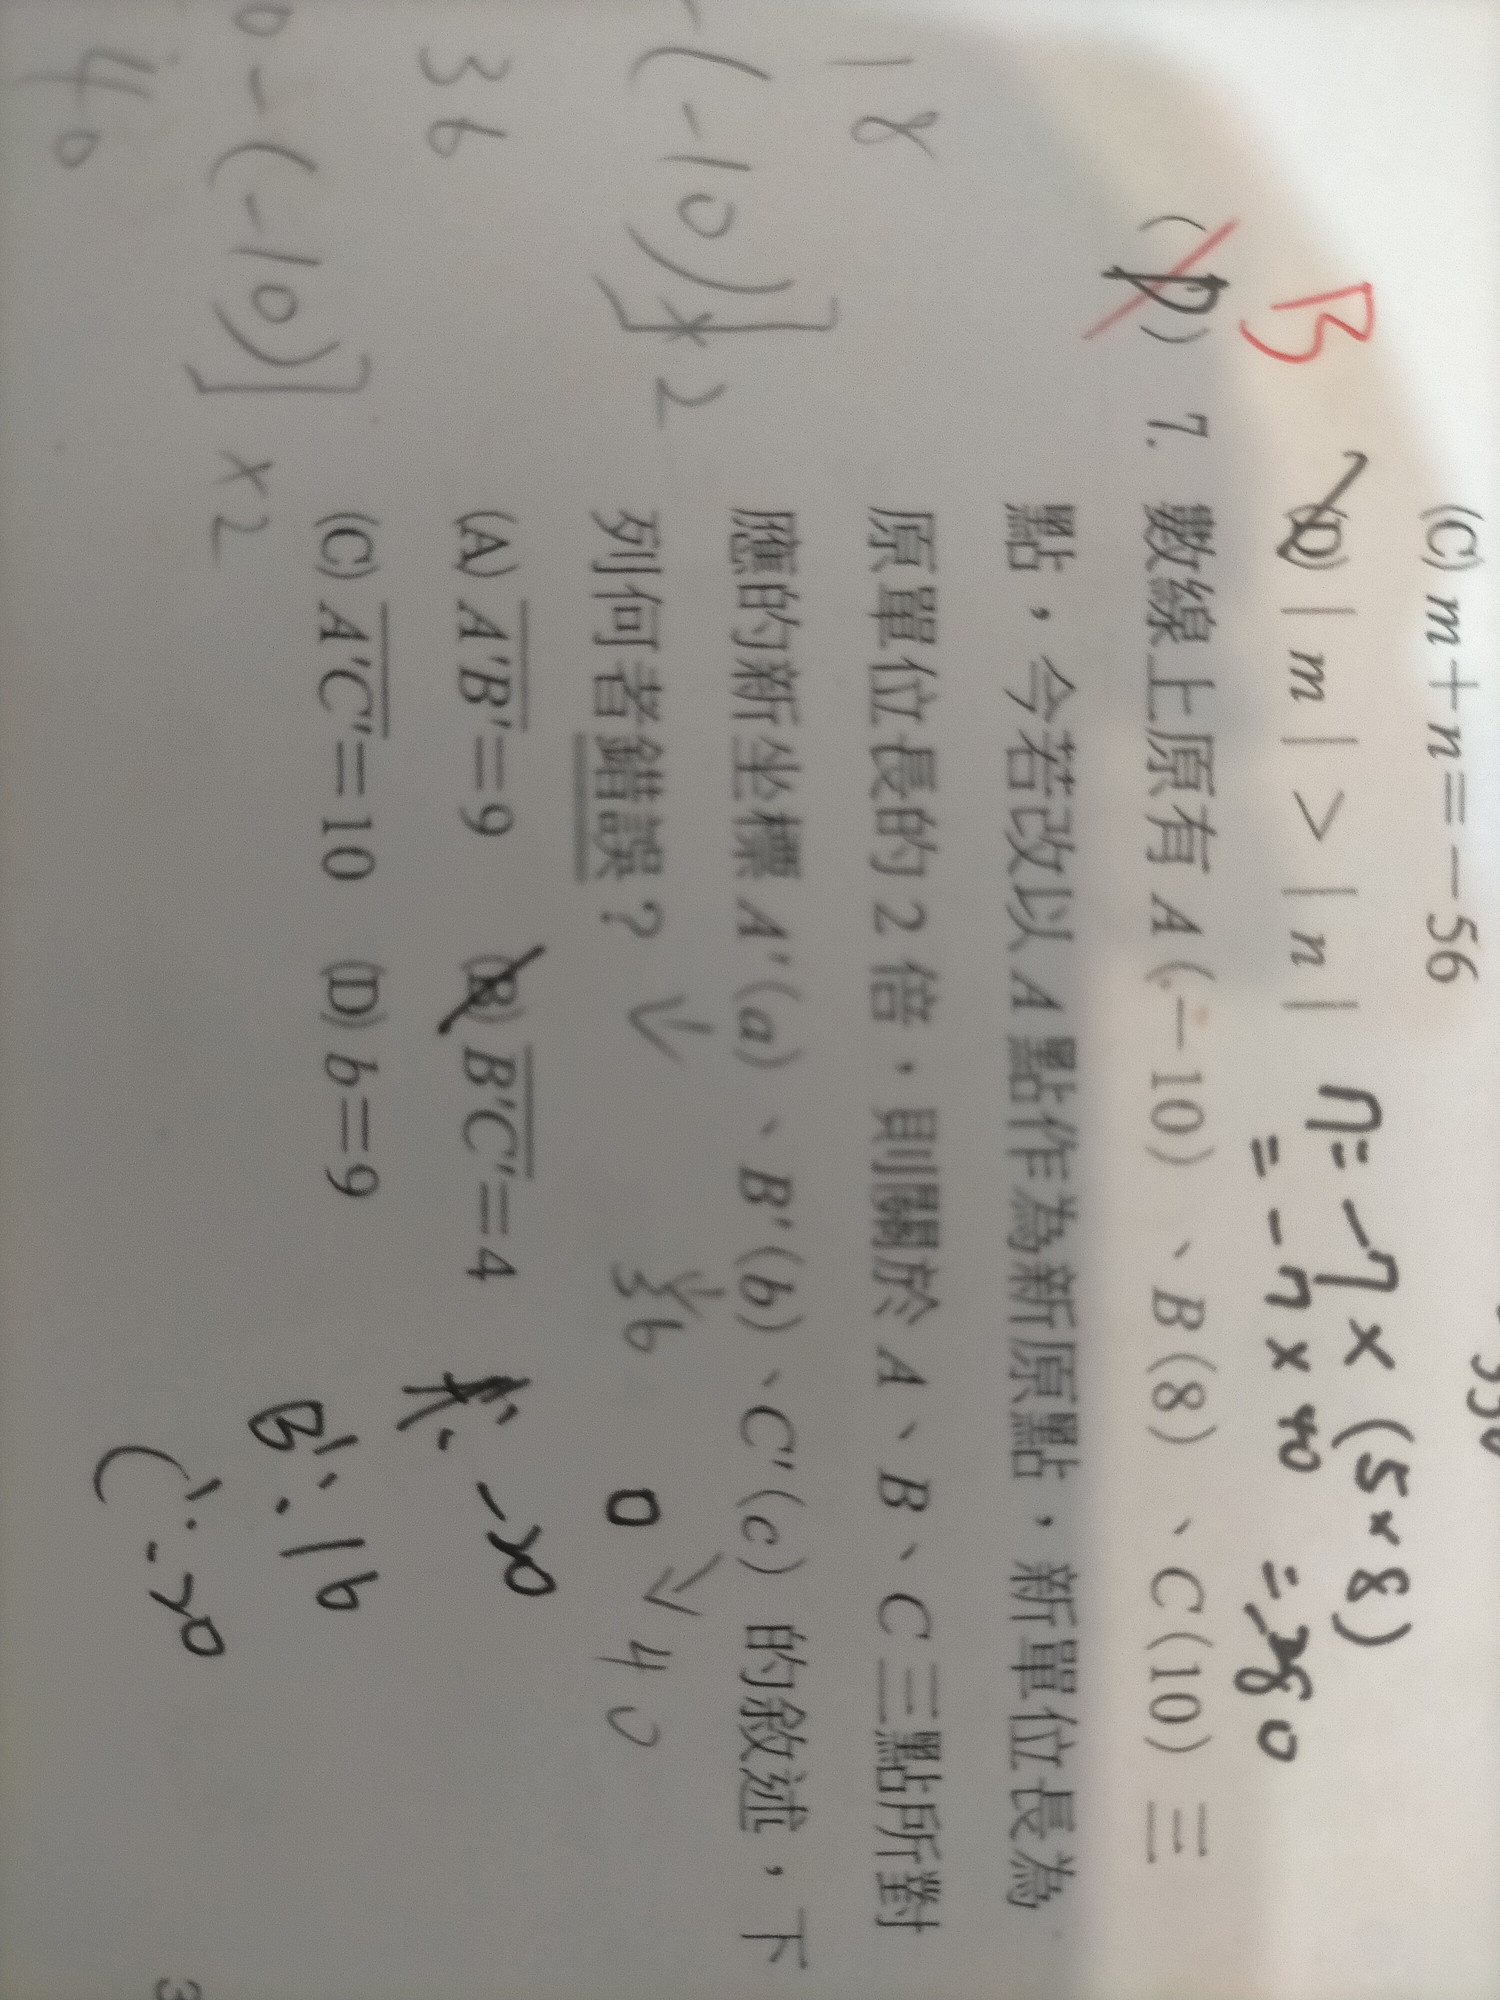 (C) m+n=-56
(D) |m|>|n|
n=-7×(5×8)
=-7×40 =-280
B
(D) 7. 數線上原有 A(-10)、B(8)、C(10) 三
點，今若改以 A 點作為新原點，新單位長為
原單位長的 2 倍，則關於 A、B、C 三點所對
應的新坐標 A'(a)、B'(b)、C'(c) 的敘述，下
列何者錯誤？
36 0 40
(A) A'B'=9 (B) B'C'=4
(C) A'C'=10 (D) b=9
-20
B': 16
18
-(-10)]×2
36
0-(-10)]×2
40
3